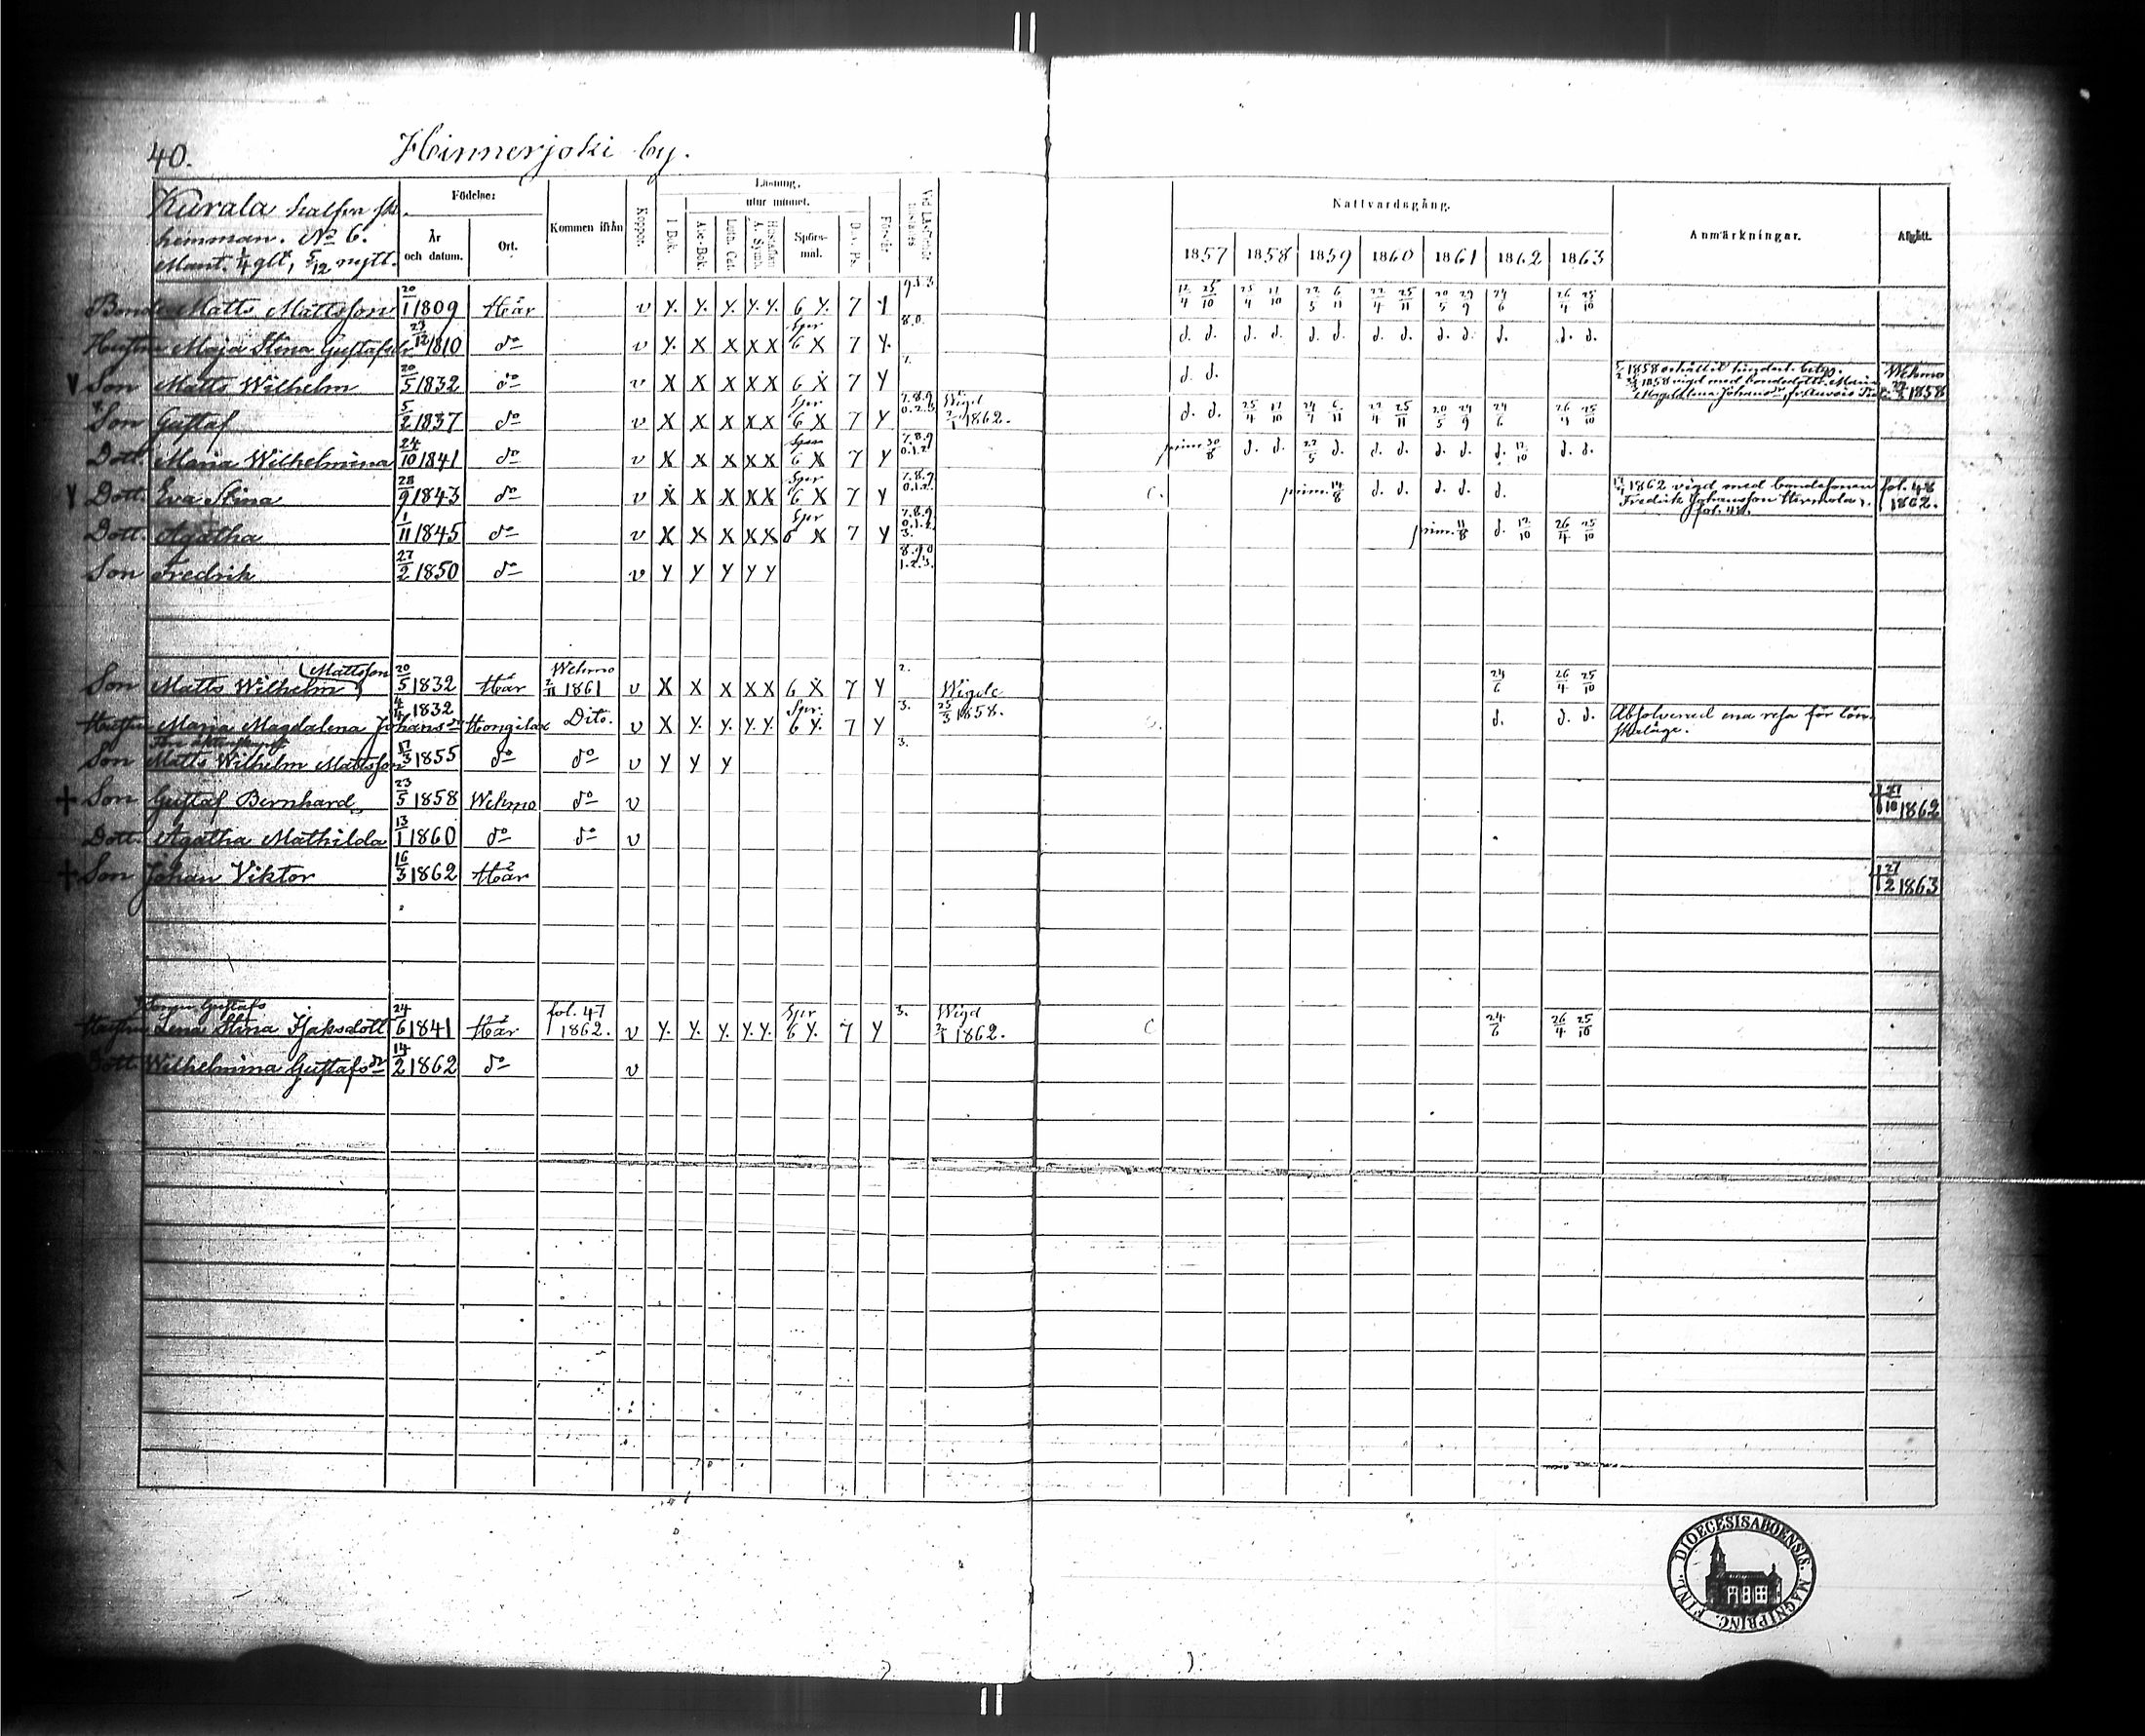 40.
Hinnerjoki by.
Kurala halfva
hemman. No 6.
Mant. 1/4 glt, 5/12 nytt.
Födelse:
År och datum.
Ort.
Kommen ifrån
Koppor.
Läsning,
utur minnet.
I Bok.
Abc-Bok.
Luth. Cat.
Hustaflan A. Symb.
Spörsmål.
Dav. Ps.
Förstår
Nattvardsgång.
1857 1858 1859 1860 1861 1862 1863
Anmärkningar.
Afgått.
Bonde Matts Mattsson 20/1 1809 Här v y. y. y. y. y. 6 y. 7 y 12/4 25/10 25/4 17/10 22/5 6/11 22/4 25/11 20/5 29/9 24/6 26/4 25/10
Hustru Maja Stina Gustafsdr 23/12 1810 do v y. x x x x Spr 6 x 7 y. 8.0. d. d. d. d. d. d. d. d. d. d. d. d. d.
v Son Matts Wilhelm 20/5 1832 do v x x x x x 6 x 7 y 7. d. d. 1858 erhållit hindersl. betyg. 1858 vigd med bondedott. Maria Magdalena Johansdr Wehmo 1858
Son Gustaf 5/2 1837 do v x x x x x Spr 6 x 7 y 7.8.9 0.2.3 Wigd 2/1 1862. d. d. 25/4 17/10 24/4 6/11 22/4 25/11 20/5 29/9 24/6 26/4 25/10
Dott. Maria Wilhelmina 24/10 1841 do v x x x x x 6 x 7 y 7.8.9 0.1.2 prim. 30/8 d. d. 22/5 d. d. d. d. d. d. 12/10 d. d.
v Dott. Eva Stina 28/9 1843 do v x x x x x Spr 6 x 7 y 7.8.9 0.1.2. C. prim. 14/8 d. d. d. d. d. 1862 vigd med bondesonen Fredrik Johansson fol. 48 1862.
Dott. Agatha 1/11 1845 do v x x x x x Spr 6 x 7 y 7.8.9 0.1.2 3. prim. 11/8 d. 12/10 26/4 25/10
Son Fredrik 27/2 1850 do v y y y y y 8.9.0 1.2.3.
Son Matts Wilhelm Mattsson 20/5 1832 Här Wehmo 2/11 1861 v x x x x x 6 x 7 y 2. Wigde 24/6 26/4 25/10
Hustru Maria Magdalena Johansdr 4/4 1832 Hongilax Dito. v x y. y. y. y. Spr. 6 y. 7 y 3. 25/3 1858. d. d. d. Absolverad ena resa för lönskaläge.
Son Matts Wilhelm Mattsson 17/3 1855 do do v y y y 3.
+ Son Gustaf Bernhard 23/5 1858 Wehmo do v + 21/10 1862
Dott. Agatha Mathilda 13/1 1860 do do v
+ Son Johan Viktor 16/3 1862 Här + 27/2 1863
Sonen Gustafs
Hustru Lena Stina Isaksdott 24/6 1841 Här fol. 47 1862. v y. y. y. y. y. Spr 6 y. 7 y 3. Wigd 2/1 1862. C 24/6 26/4 25/10
Dott. Wilhelmina Gustafsdr 14/2 1862 do v
DIOECESIS ABOENSIS. MAGNI PRINC. FINL.